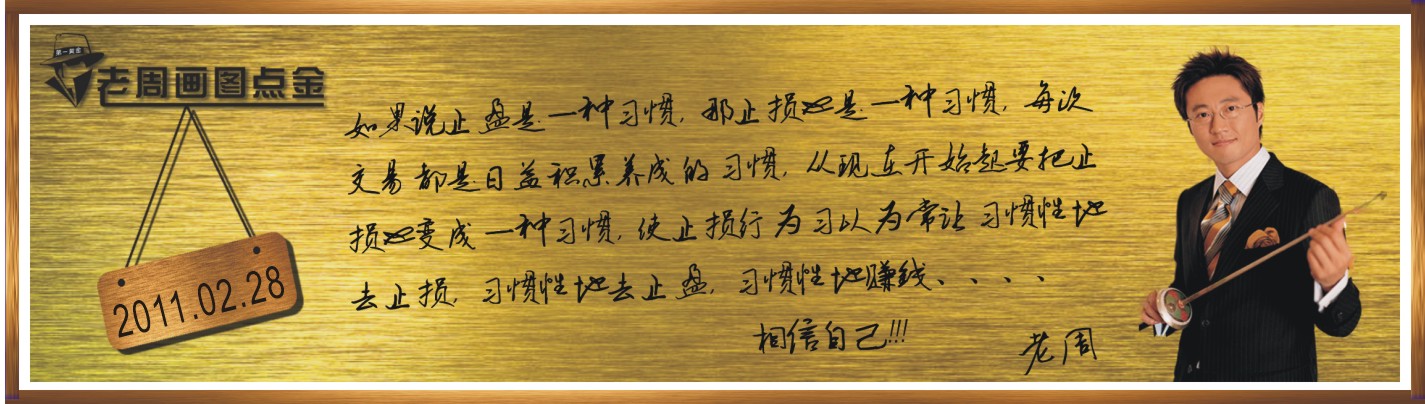 第一周金
老周画图点金
2011.02.28
如果说止盈是一种习惯，那止损也是一种习惯，每次
交易都是日益积累养成的习惯，从现在开始起要把止
损也变成一种习惯，使止损行为习以为常让习惯性地
去止损，习惯性地去止盈，习惯性地赚钱、、、、
相信自己!!!
老周